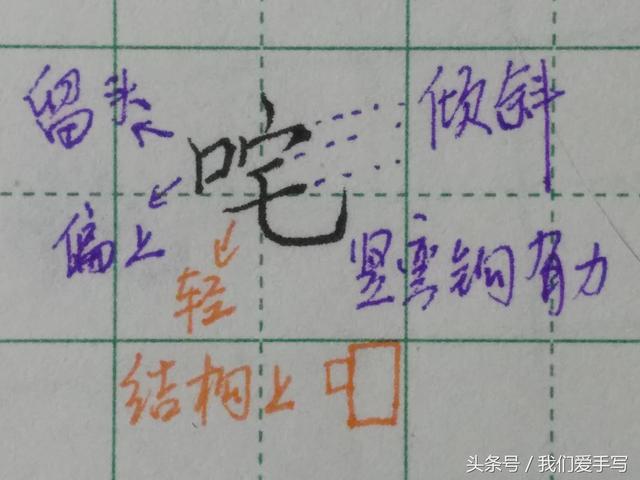 留头
倾斜
咤
偏上
轻
竖弯钩有力
结构上
头条号／我们爱手写